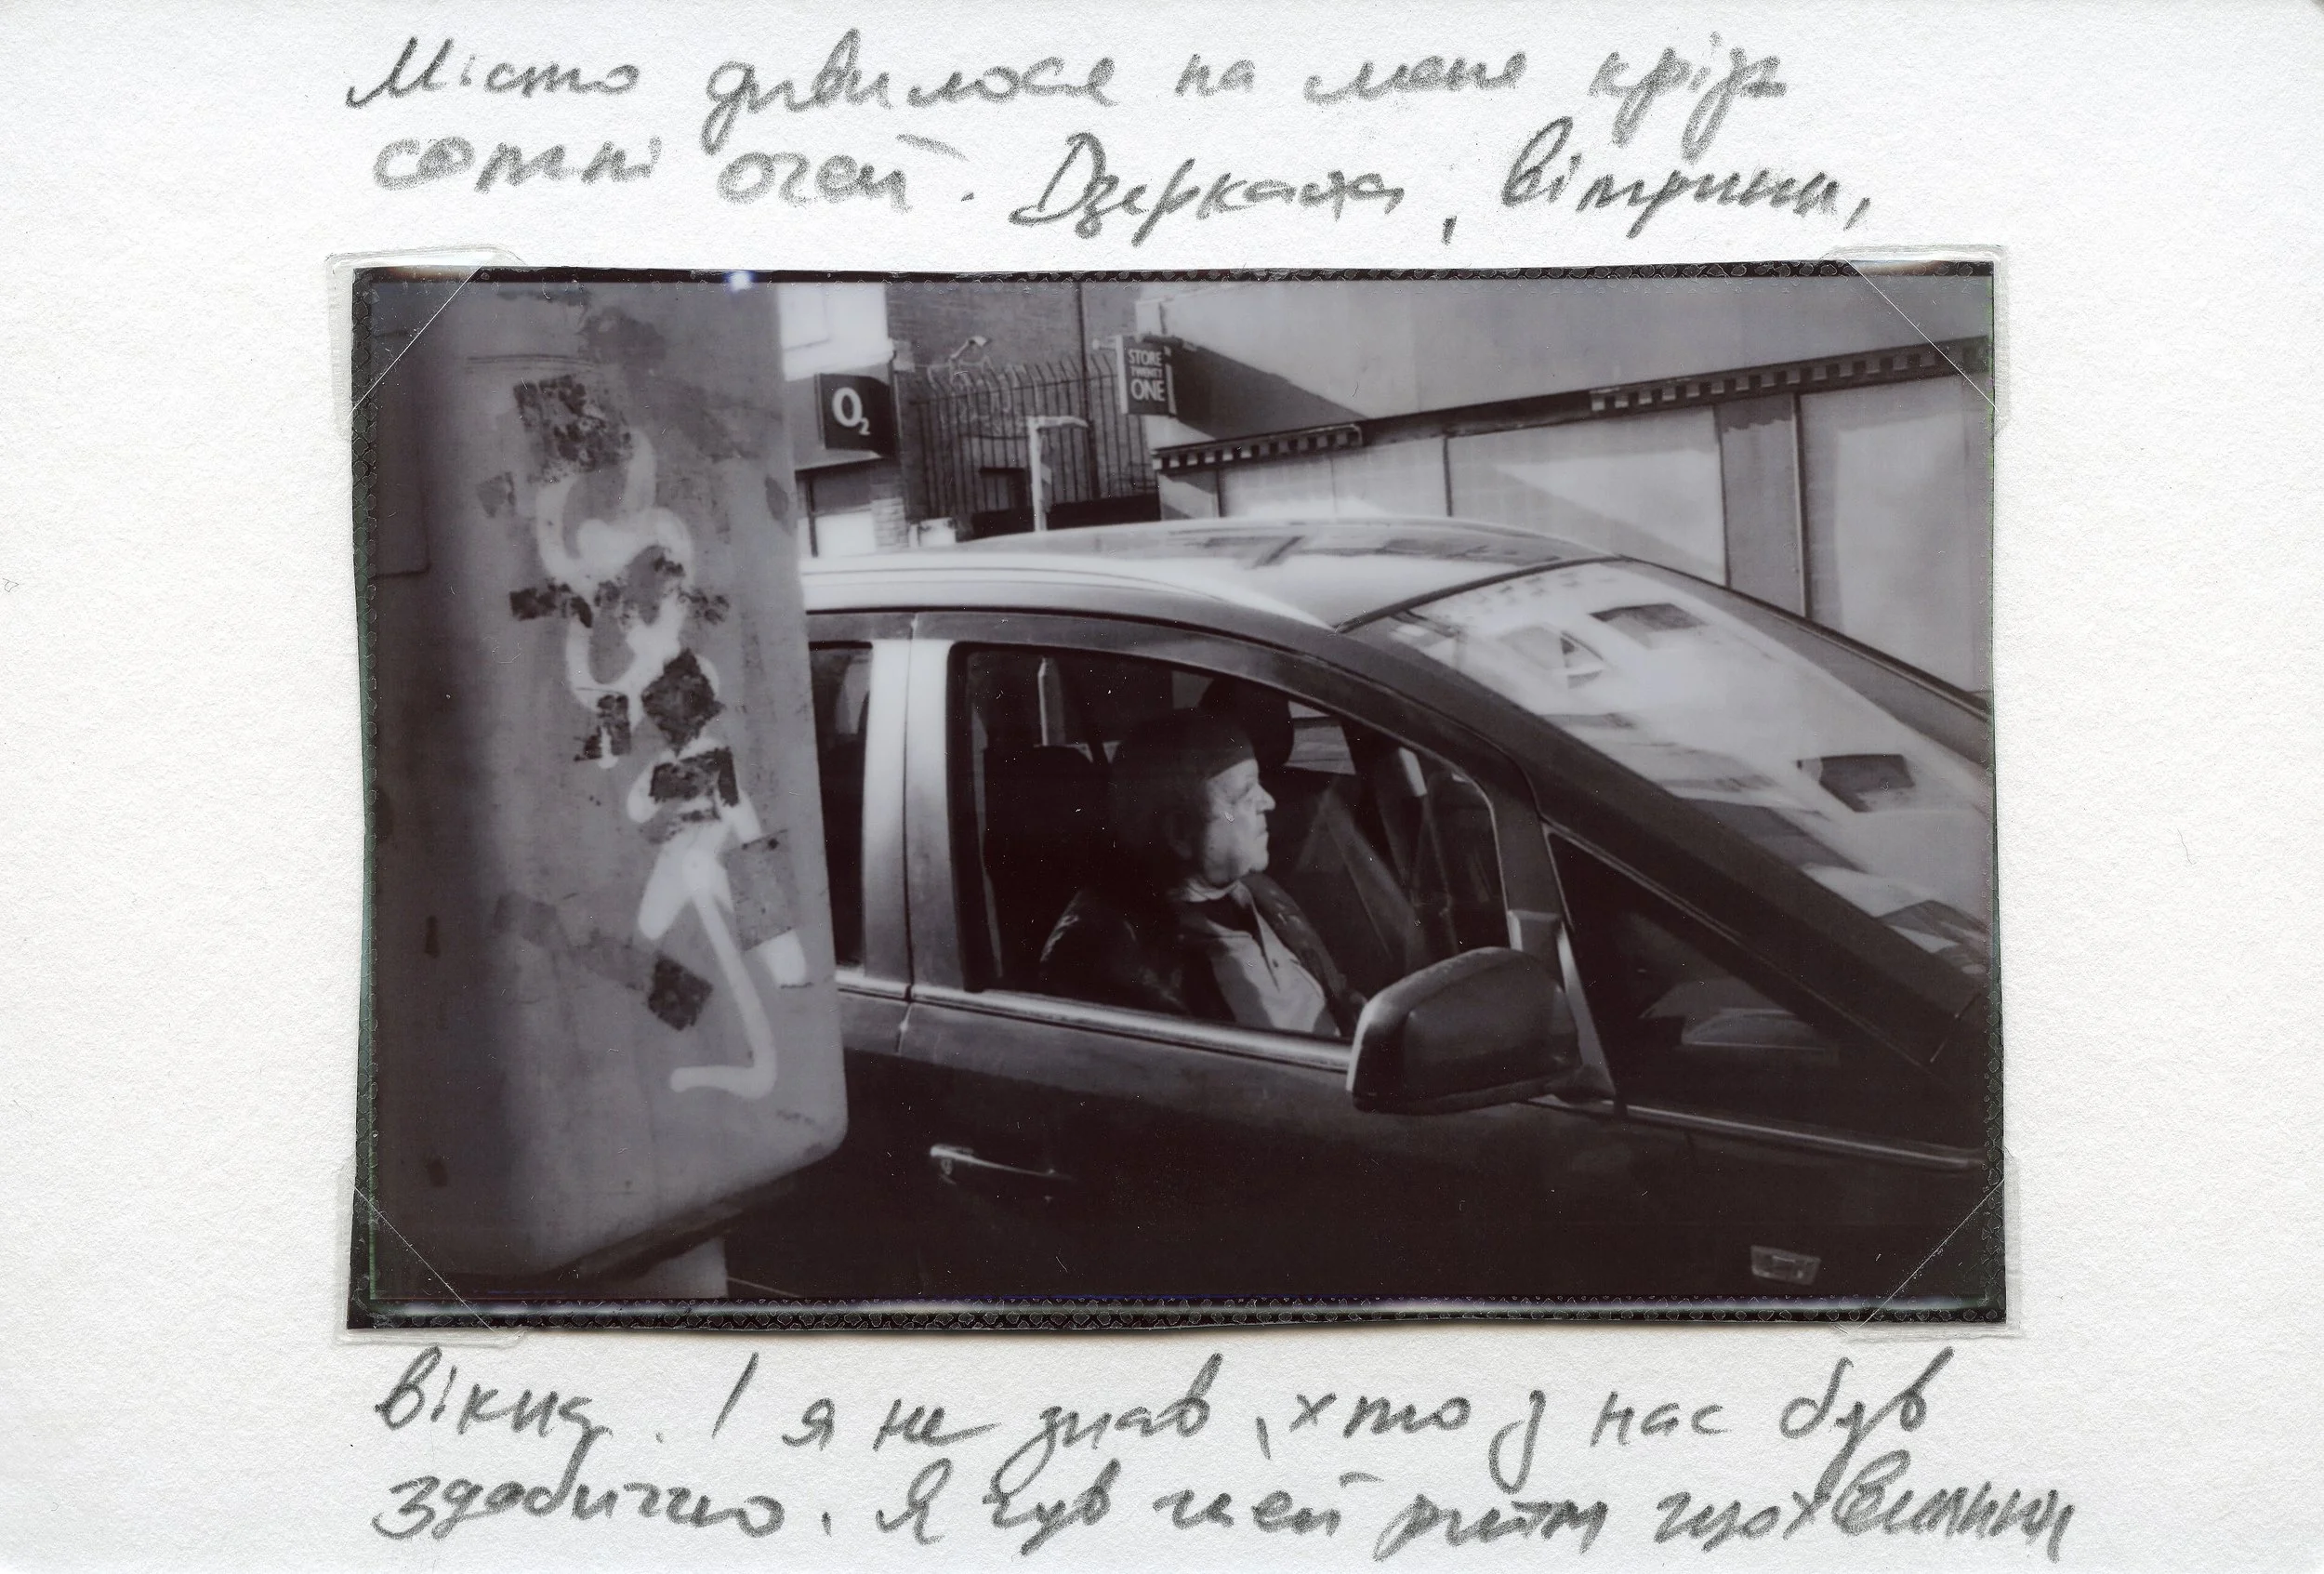 Місто дивилося на мене крізь
сотні очей. Дзеркала, вітрини,
O2
STORE
TWENTY
ONE
вікна. І я не знав, хто з нас був
здобиччю. Я чув цей ритм щохвилини